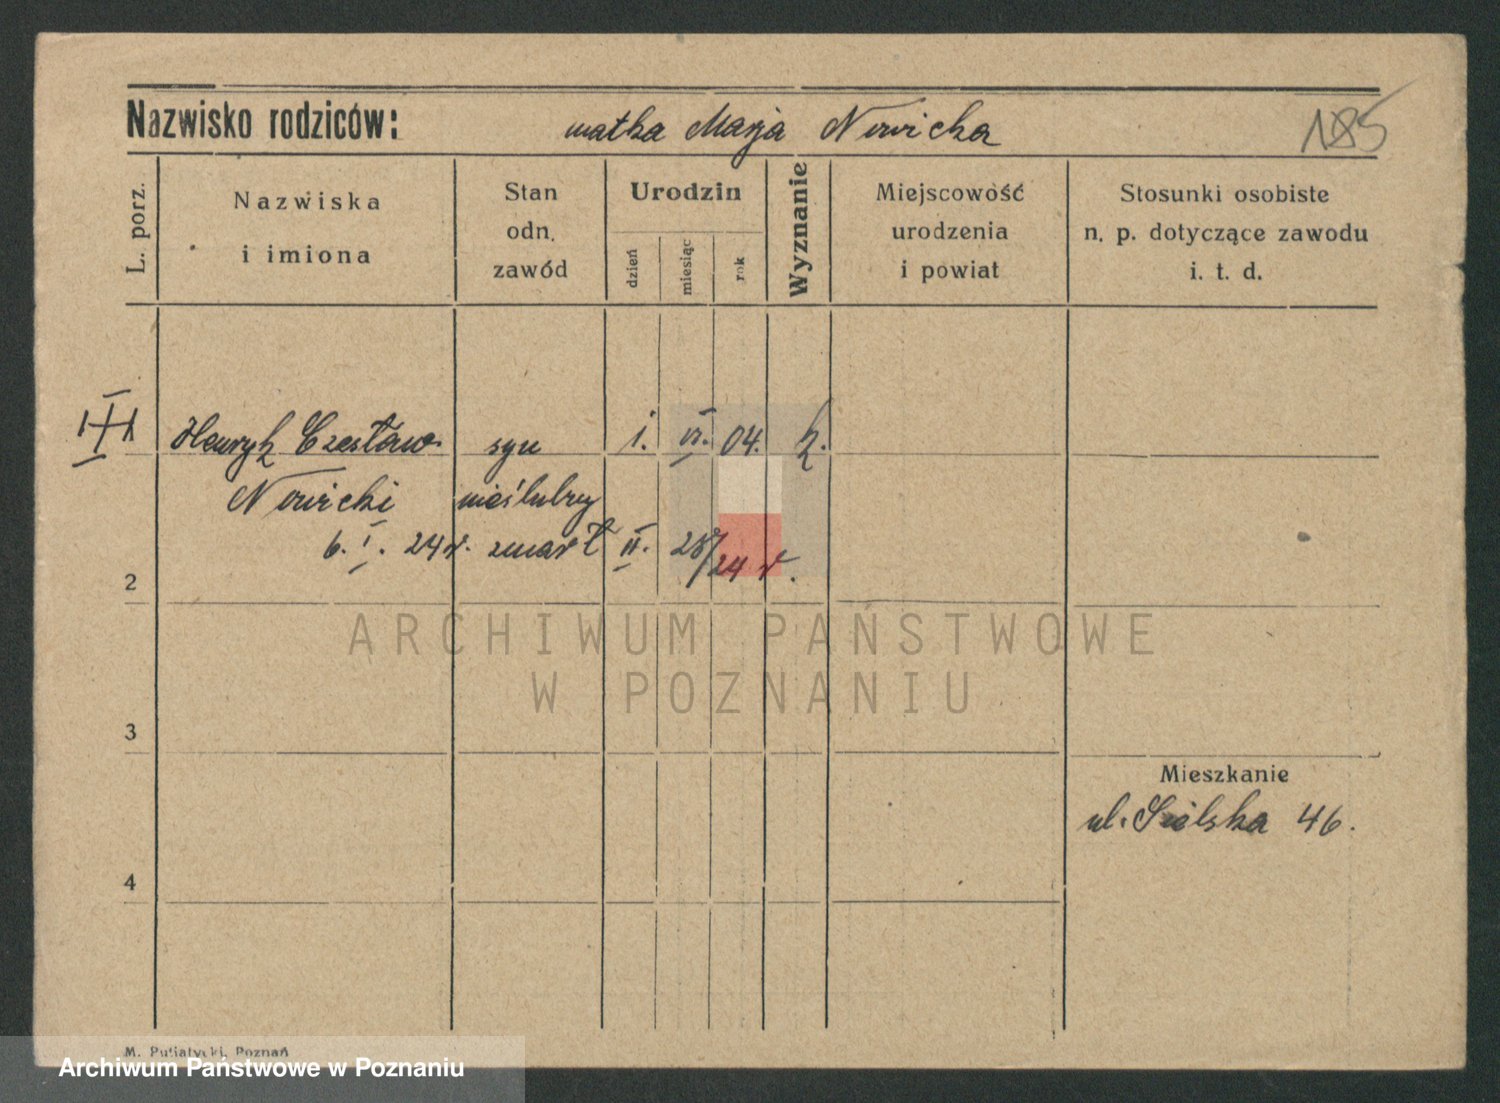 Nazwisko rodziców: matka Marja Nowicka 185
L. porz.
Nazwiska
i imiona
Stan
odn.
zawód
Urodzin
dzień
miesiąc
rok
Wyznanie
Miejscowość
urodzenia
i powiat
Stosunki osobiste
n. p. dotyczące zawodu
i. t. d.
Henryk Czesław syn 1. VI. 04. k.
Nowicki nieślubny
6. I. 24 r. zmarł II. 28/24 r.
2
ARCHIWUM PAŃSTWOWE
W POZNANIU
3
Mieszkanie
ul. 46.
4
M. Putiatycki, Poznań
Archiwum Państwowe w Poznaniu